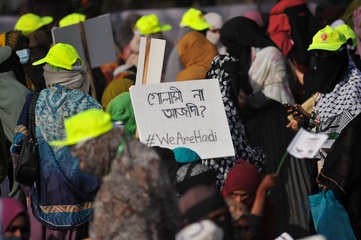 গোলামী না
আজাদী?
#WeAreHadi